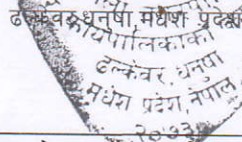 ढल्केवर, धनुषा, मधेश प्रदेश
कार्यपालिकाको
ढल्केवर, धनुषा
मधेश प्रदेश, नेपाल
२०७३